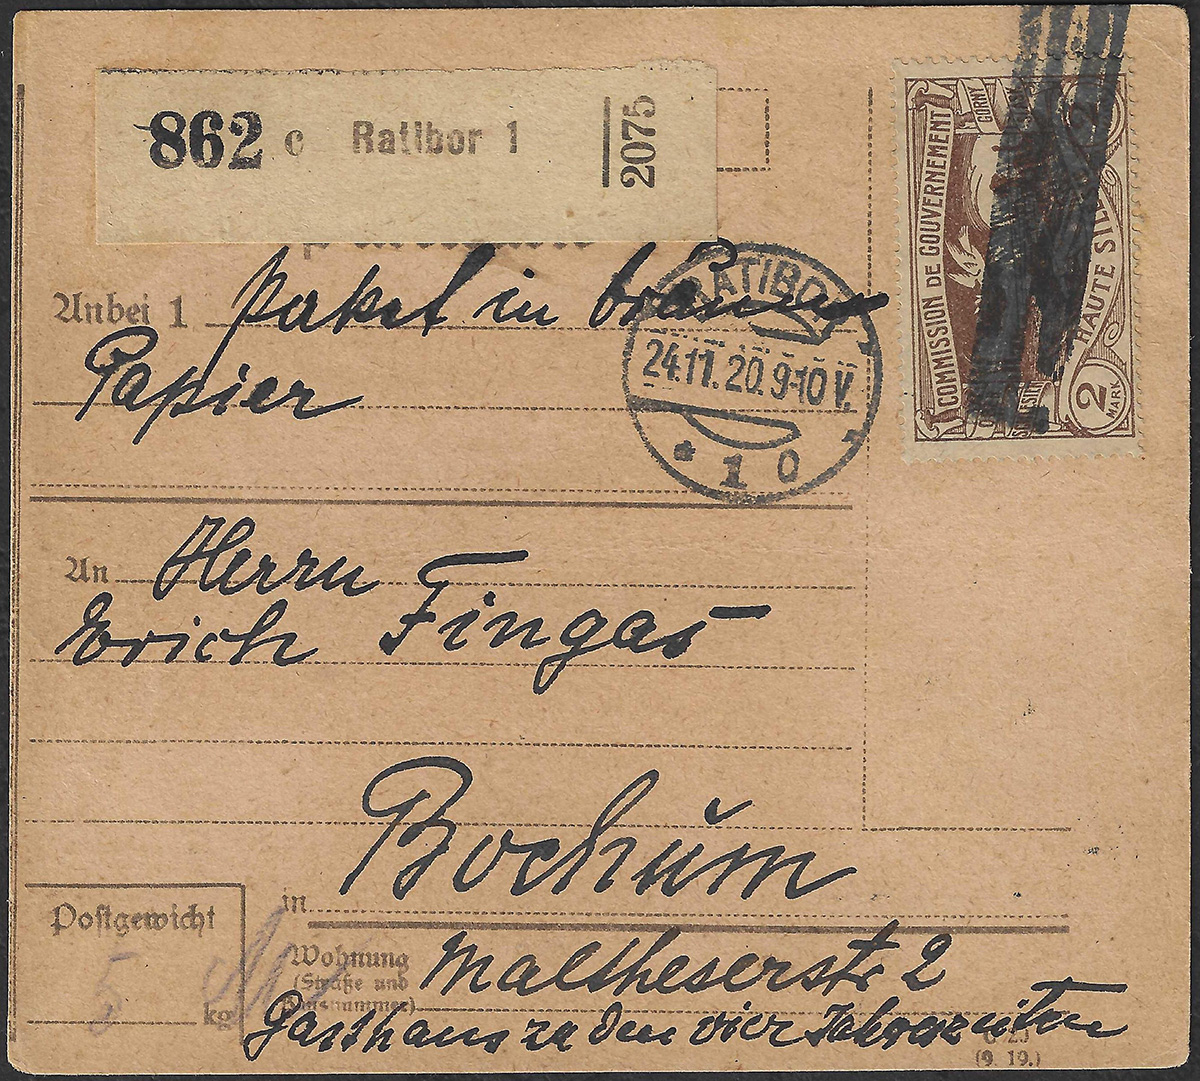 862 c Ratibor 1 2075
Anbei 1 Paket in braunem
Papier
RATIBOR
24.11.20. 9-10 V.
* 1 o
COMMISSION DE GOUVERNEMENT
HAUTE SIL
GORNY
2
MARK
An Herrn
Erich Fingas
in Bochŭm
Postgewicht
5 kg
Wohnung
(Straße und
Hausnummer)
Maltheserstr. 2
Gasthaus zu den vier Jahreszeiten
(9. 19.)